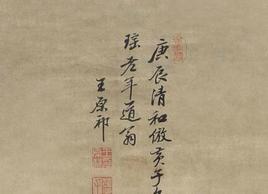 庚辰清和倣黃子久
琮老年道翁
王原祁